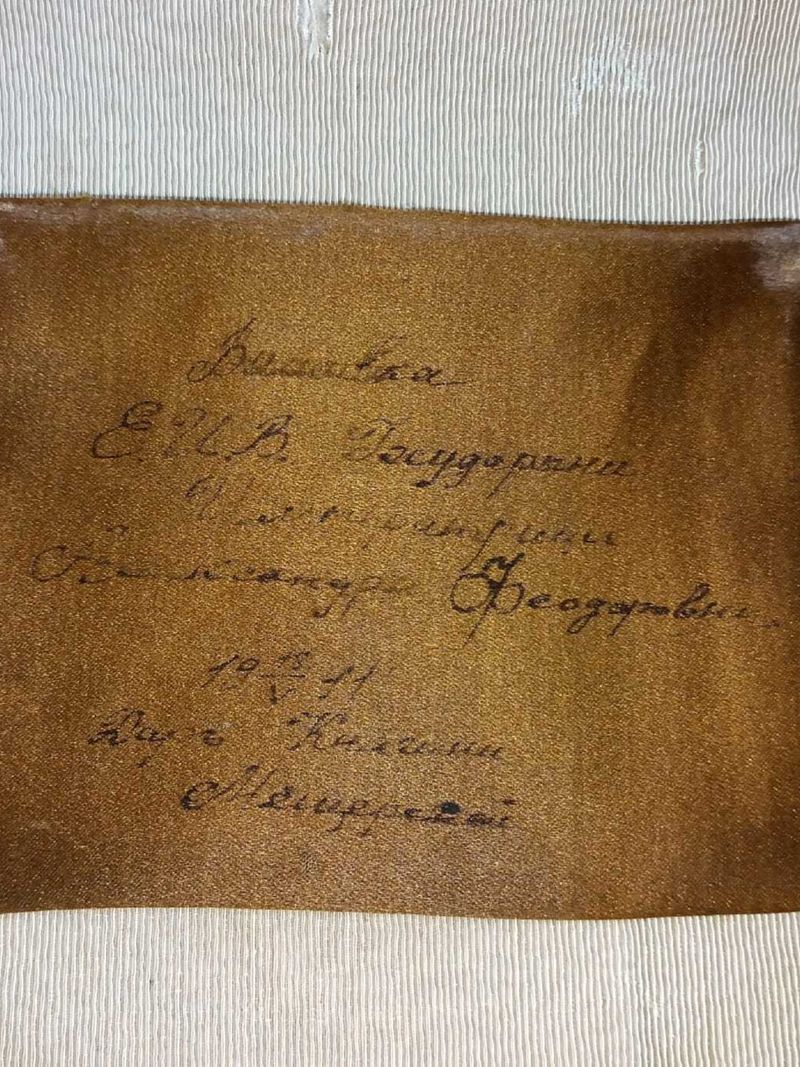 Булавка
Е И В. Государыни
Императрицы
Александры Феодоровны
19 18/V 11
Даръ Княгини
Мещерской